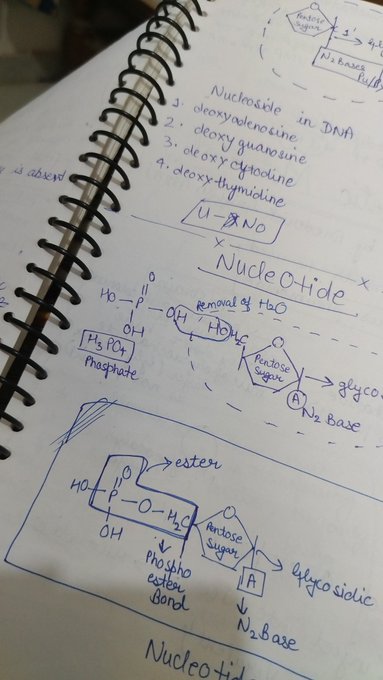 Pentose
Sugar
1'
N2 Bases
Pu/
Nucleoside in DNA
1. deoxyadenosine
2. deoxy guanosine
3. deoxy cytidine
4. deoxy-thymidine
is absent
U - NO
x x
Nucleotide
O
HO-P-OH HOH2C
Removal of H2O
OH
H3PO4
Phosphate
O
Pentose
Sugar
A
glyco
N2 Base
ester
O
HO-P-O-H2C
OH
O
Pentose
Sugar
Phospho
ester
Bond
A
Glycosidic
N2 Base
Nucleotide